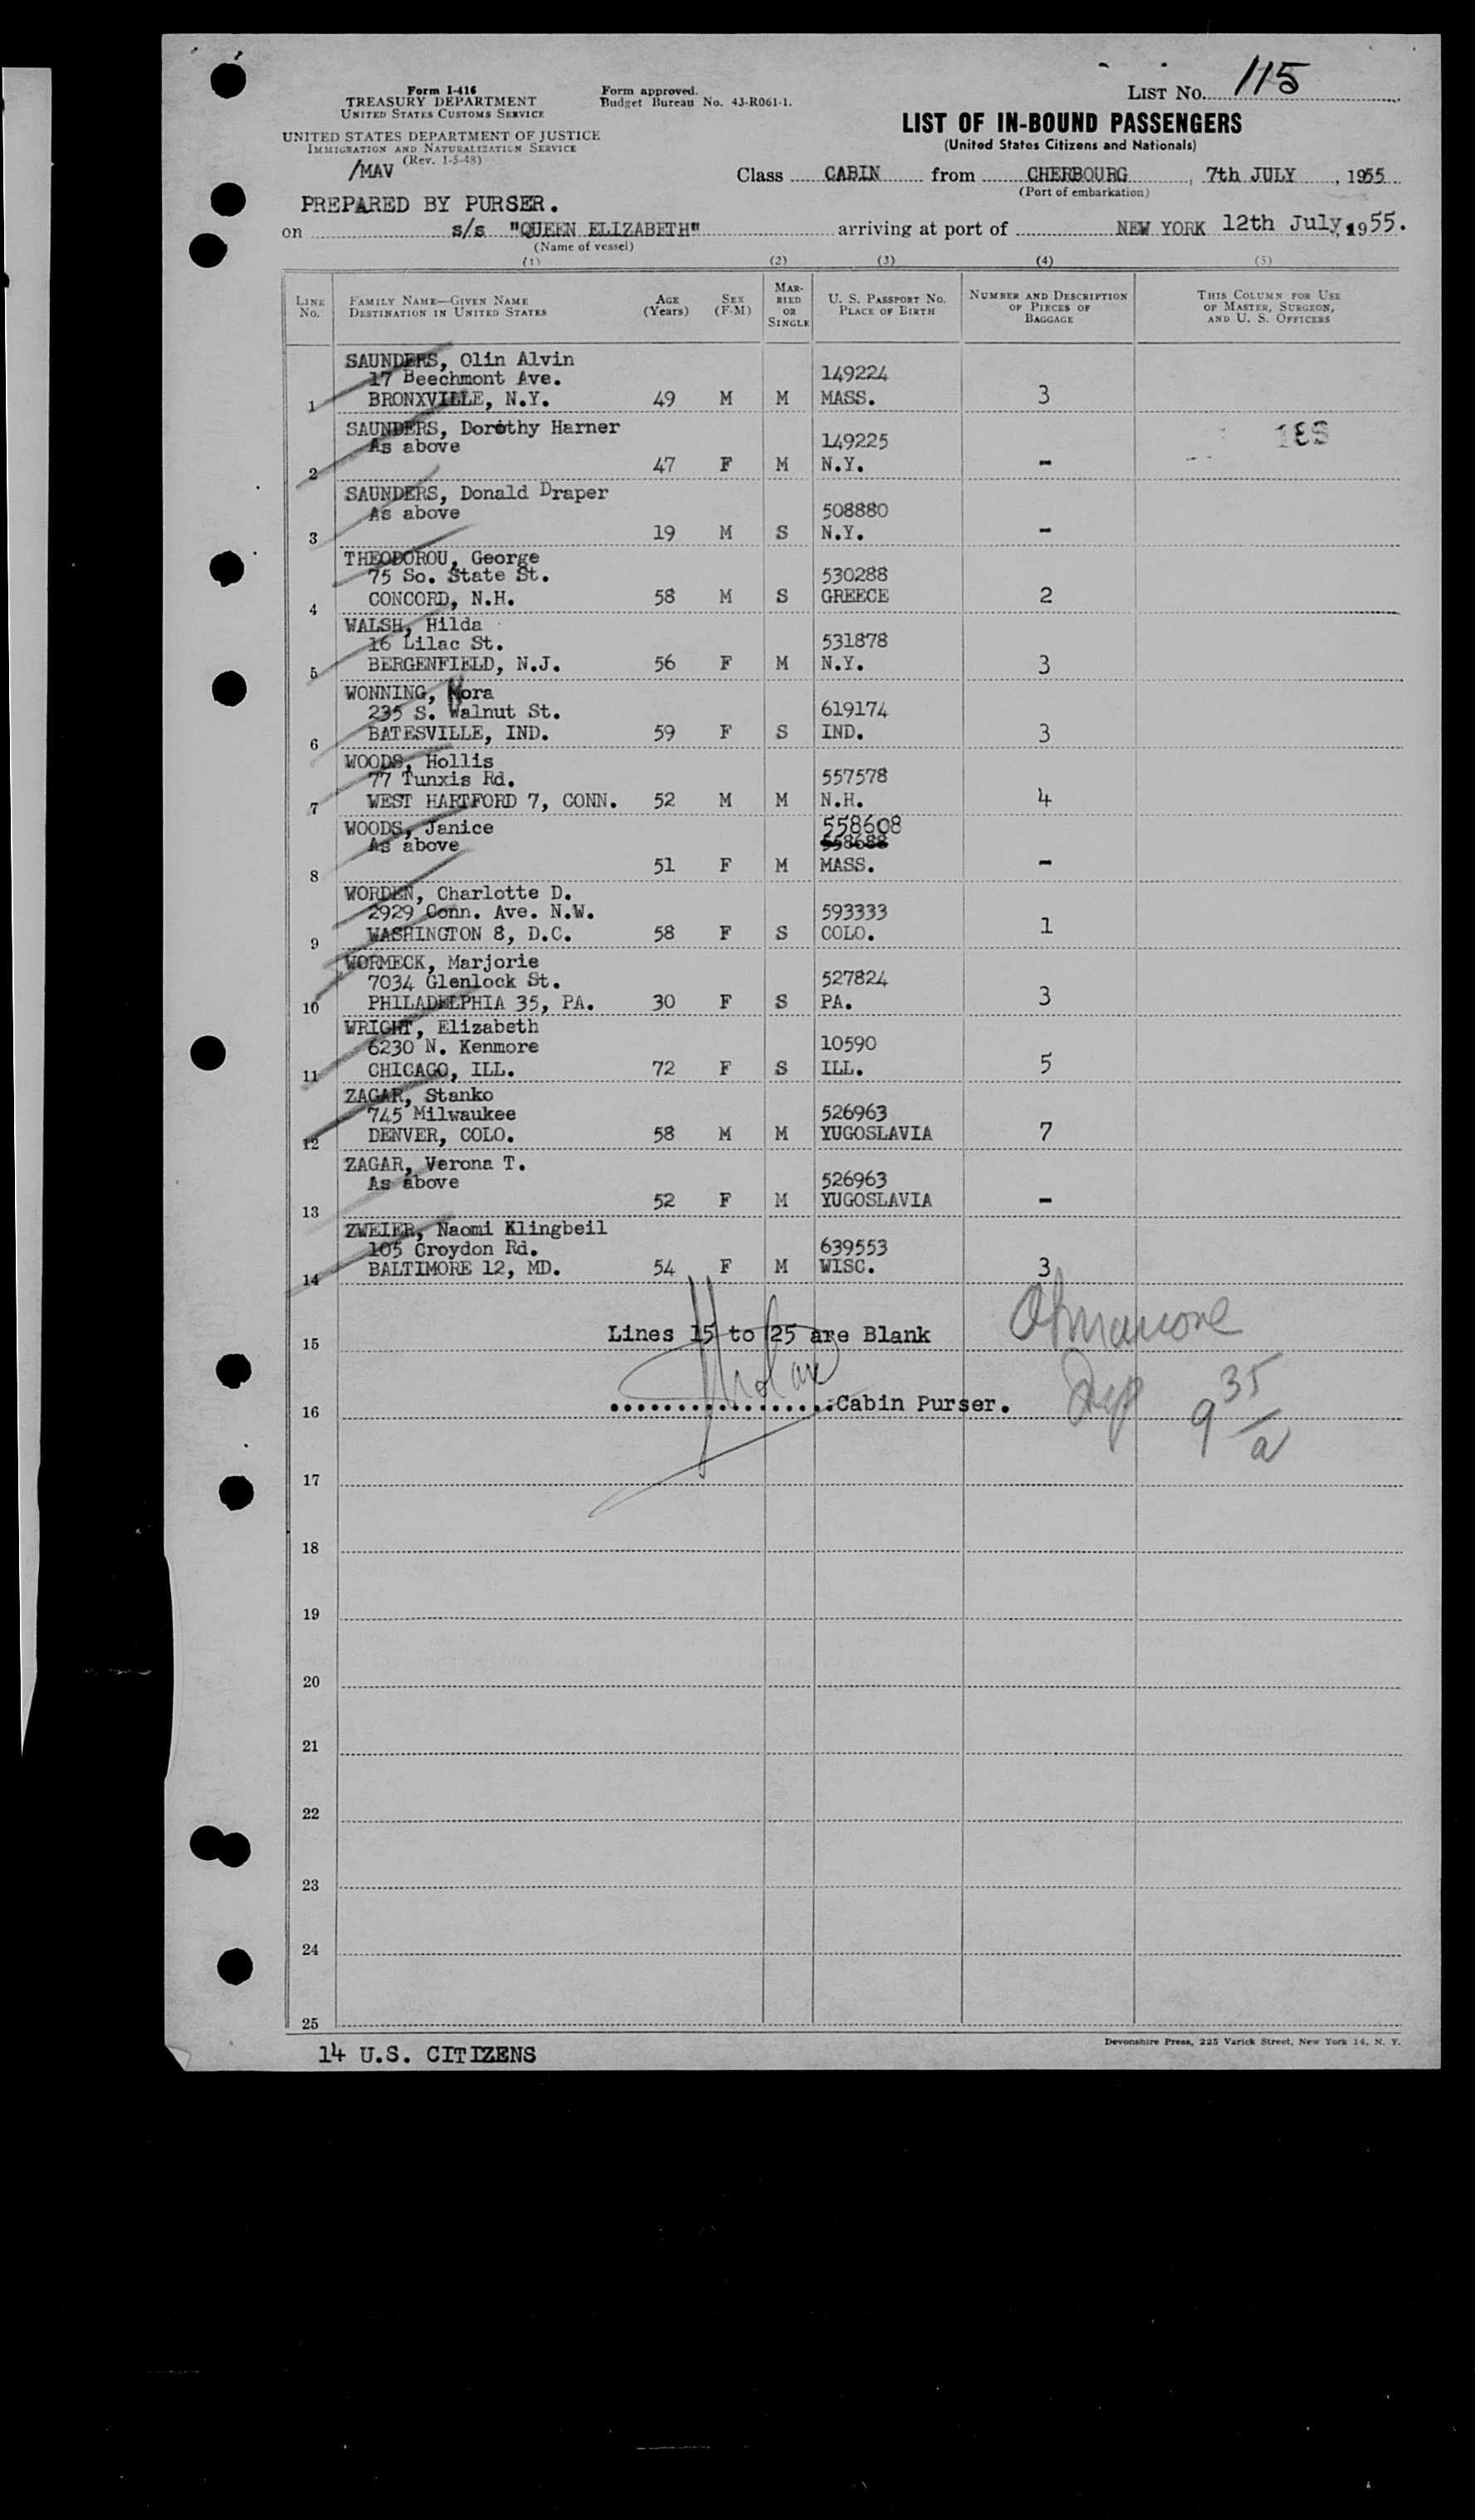 Form I-416
TREASURY DEPARTMENT
UNITED STATES CUSTOMS SERVICE
UNITED STATES DEPARTMENT OF JUSTICE
IMMIGRATION AND NATURALIZATION SERVICE
(Rev. 1-5-48)
/MAV
Form approved.
Budget Bureau No. 43-R061-1.
LIST No. 115
LIST OF IN-BOUND PASSENGERS
(United States Citizens and Nationals)
Class CABIN from CHERBOURG, 7th JULY, 1955
(Port of embarkation)
PREPARED BY PURSER.
on s/s "QUEEN ELIZABETH" arriving at port of NEW YORK 12th July, 1955.
(Name of vessel)
(1) (2) (3) (4) (5)
LINE No. FAMILY NAME—GIVEN NAME DESTINATION IN UNITED STATES AGE (Years) SEX (F-M) MARRIED OR SINGLE U. S. PASSPORT No. PLACE OF BIRTH NUMBER AND DESCRIPTION OF PIECES OF BAGGAGE THIS COLUMN FOR USE OF MASTER, SURGEON, AND U. S. OFFICERS
SAUNDERS, Olin Alvin
17 Beechmont Ave. 149224
1 BRONXVILLE, N.Y. 49 M M MASS. 3
SAUNDERS, Dorothy Harner
As above 149225
2 47 F M N.Y. -
SAUNDERS, Donald Draper
As above 508880
3 19 M S N.Y. -
THEODOROU, George
75 So. State St. 530288
4 CONCORD, N.H. 58 M S GREECE 2
WALSH, Hilda
16 Lilac St. 531878
5 BERGENFIELD, N.J. 56 F M N.Y. 3
WONNING, Nora
235 S. Walnut St. 619174
6 BATESVILLE, IND. 59 F S IND. 3
WOODS, Hollis
77 Tunxis Rd. 557578
7 WEST HARTFORD 7, CONN. 52 M M N.H. 4
WOODS, Janice 558608
As above 558688
8 51 F M MASS. -
WORDEN, Charlotte D.
2929 Conn. Ave. N.W. 593333
9 WASHINGTON 8, D.C. 58 F S COLO. 1
WORMECK, Marjorie
7034 Glenlock St. 527824
10 PHILADELPHIA 35, PA. 30 F S PA. 3
WRIGHT, Elizabeth
6230 N. Kenmore 10590
11 CHICAGO, ILL. 72 F S ILL. 5
ZAGAR, Stanko
745 Milwaukee 526963
12 DENVER, COLO. 58 M M YUGOSLAVIA 7
ZAGAR, Verona T.
As above 526963
13 52 F M YUGOSLAVIA -
ZWEIER, Naomi Klingbeil
105 Croydon Rd. 639553
14 BALTIMORE 12, MD. 54 F M WISC. 3
15 Lines 15 to 25 are Blank
16 Cabin Purser. 9 35/a
17
18
19
20
21
22
23
24
25
Devonshire Press, 225 Varick Street, New York 14, N. Y.
14 U.S. CITIZENS